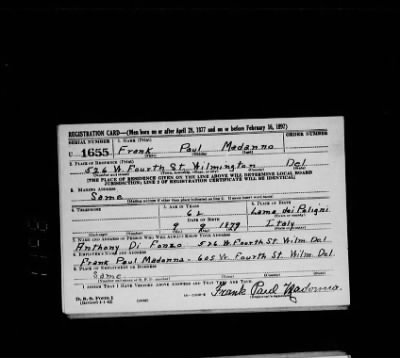 REGISTRATION CARD—(Men born on or after April 28, 1877 and on or before February 16, 1897)
SERIAL NUMBER 1. NAME (Print) ORDER NUMBER
U 1655 Frank Paul Madanno
(First) (Middle) (Last)
2. PLACE OF RESIDENCE (Print)
526 W. Fourth St. Wilmington Del
(Number and street) (Town, township, village, or city) (County) (State)
[THE PLACE OF RESIDENCE GIVEN ON THE LINE ABOVE WILL DETERMINE LOCAL BOARD
JURISDICTION; LINE 2 OF REGISTRATION CERTIFICATE WILL BE IDENTICAL]
3. MAILING ADDRESS
Same
[Mailing address if other than place indicated on line 2. If same insert word same]
4. TELEPHONE 5. AGE IN YEARS 6. PLACE OF BIRTH
62 Lama dei Peligni
DATE OF BIRTH
9 9 1879 Italy
7. NAME AND ADDRESS OF PERSON WHO WILL ALWAYS KNOW YOUR ADDRESS
Anthony Di Fonzo 526 W. Fourth St. Wilm. Del.
8. EMPLOYER'S NAME AND ADDRESS
Frank Paul Madanna - 605 W. Fourth St. Wilm. Del.
9. PLACE OF EMPLOYMENT OR BUSINESS
Same
I AFFIRM THAT I HAVE VERIFIED ABOVE ANSWERS AND THAT THEY ARE TRUE.
D. S. S. Form 1
Frank Paul Madonna